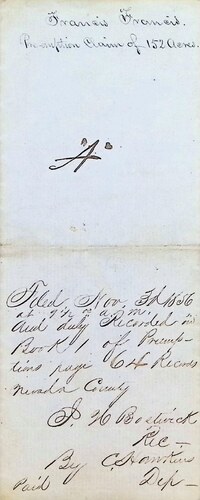 Francis Francis.
Pre-emption Claim of 152 Acres.
"A"
Filed, Nov. 1856
at a.m.
and duly Recorded in
Book 1 of Preemp-
tions page 64 Records
Nevada County
J. H. Bostwick
Rec —
By C. Hawkins
Paid Dep —